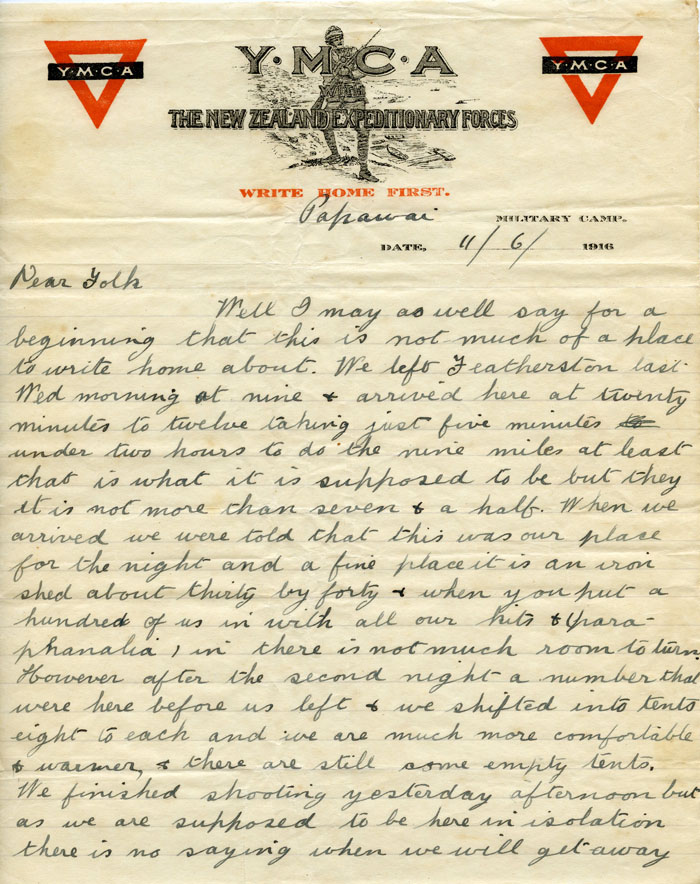 Y·M·C·A
Y·M·C·A
Y·M·C·A
THE NEW ZEALAND EXPEDITIONARY FORCES
WRITE HOME FIRST.
Papawai MILITARY CAMP.
DATE, 11/6/ 1916
Dear Folk
Well I may as well say for a
beginning that this is not much of a place
to write home about. We left Featherston last
Wed morning at nine & arrived here at twenty
minutes to twelve taking just five minutes
under two hours to do the nine miles at least
that is what it is supposed to be but they
it is not more than seven & a half. When we
arrived we were told that this was our place
for the night and a fine place it is an iron
shed about thirty by forty & when you put a
hundred of us in with all our kits & para-
phanalia, in there is not much room to turn.
However after the second night a number that
were here before us left & we shifted into tents
eight to each and we are much more comfortable
& warmer, & there are still some empty tents.
We finished shooting yesterday afternoon but
as we are supposed to be here in isolation
there is no saying when we will get away